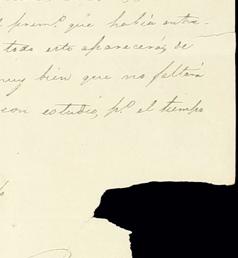 que había entra-
todo esto aparecerá, de
muy bien que no faltará
con estudio, pº el tiempo